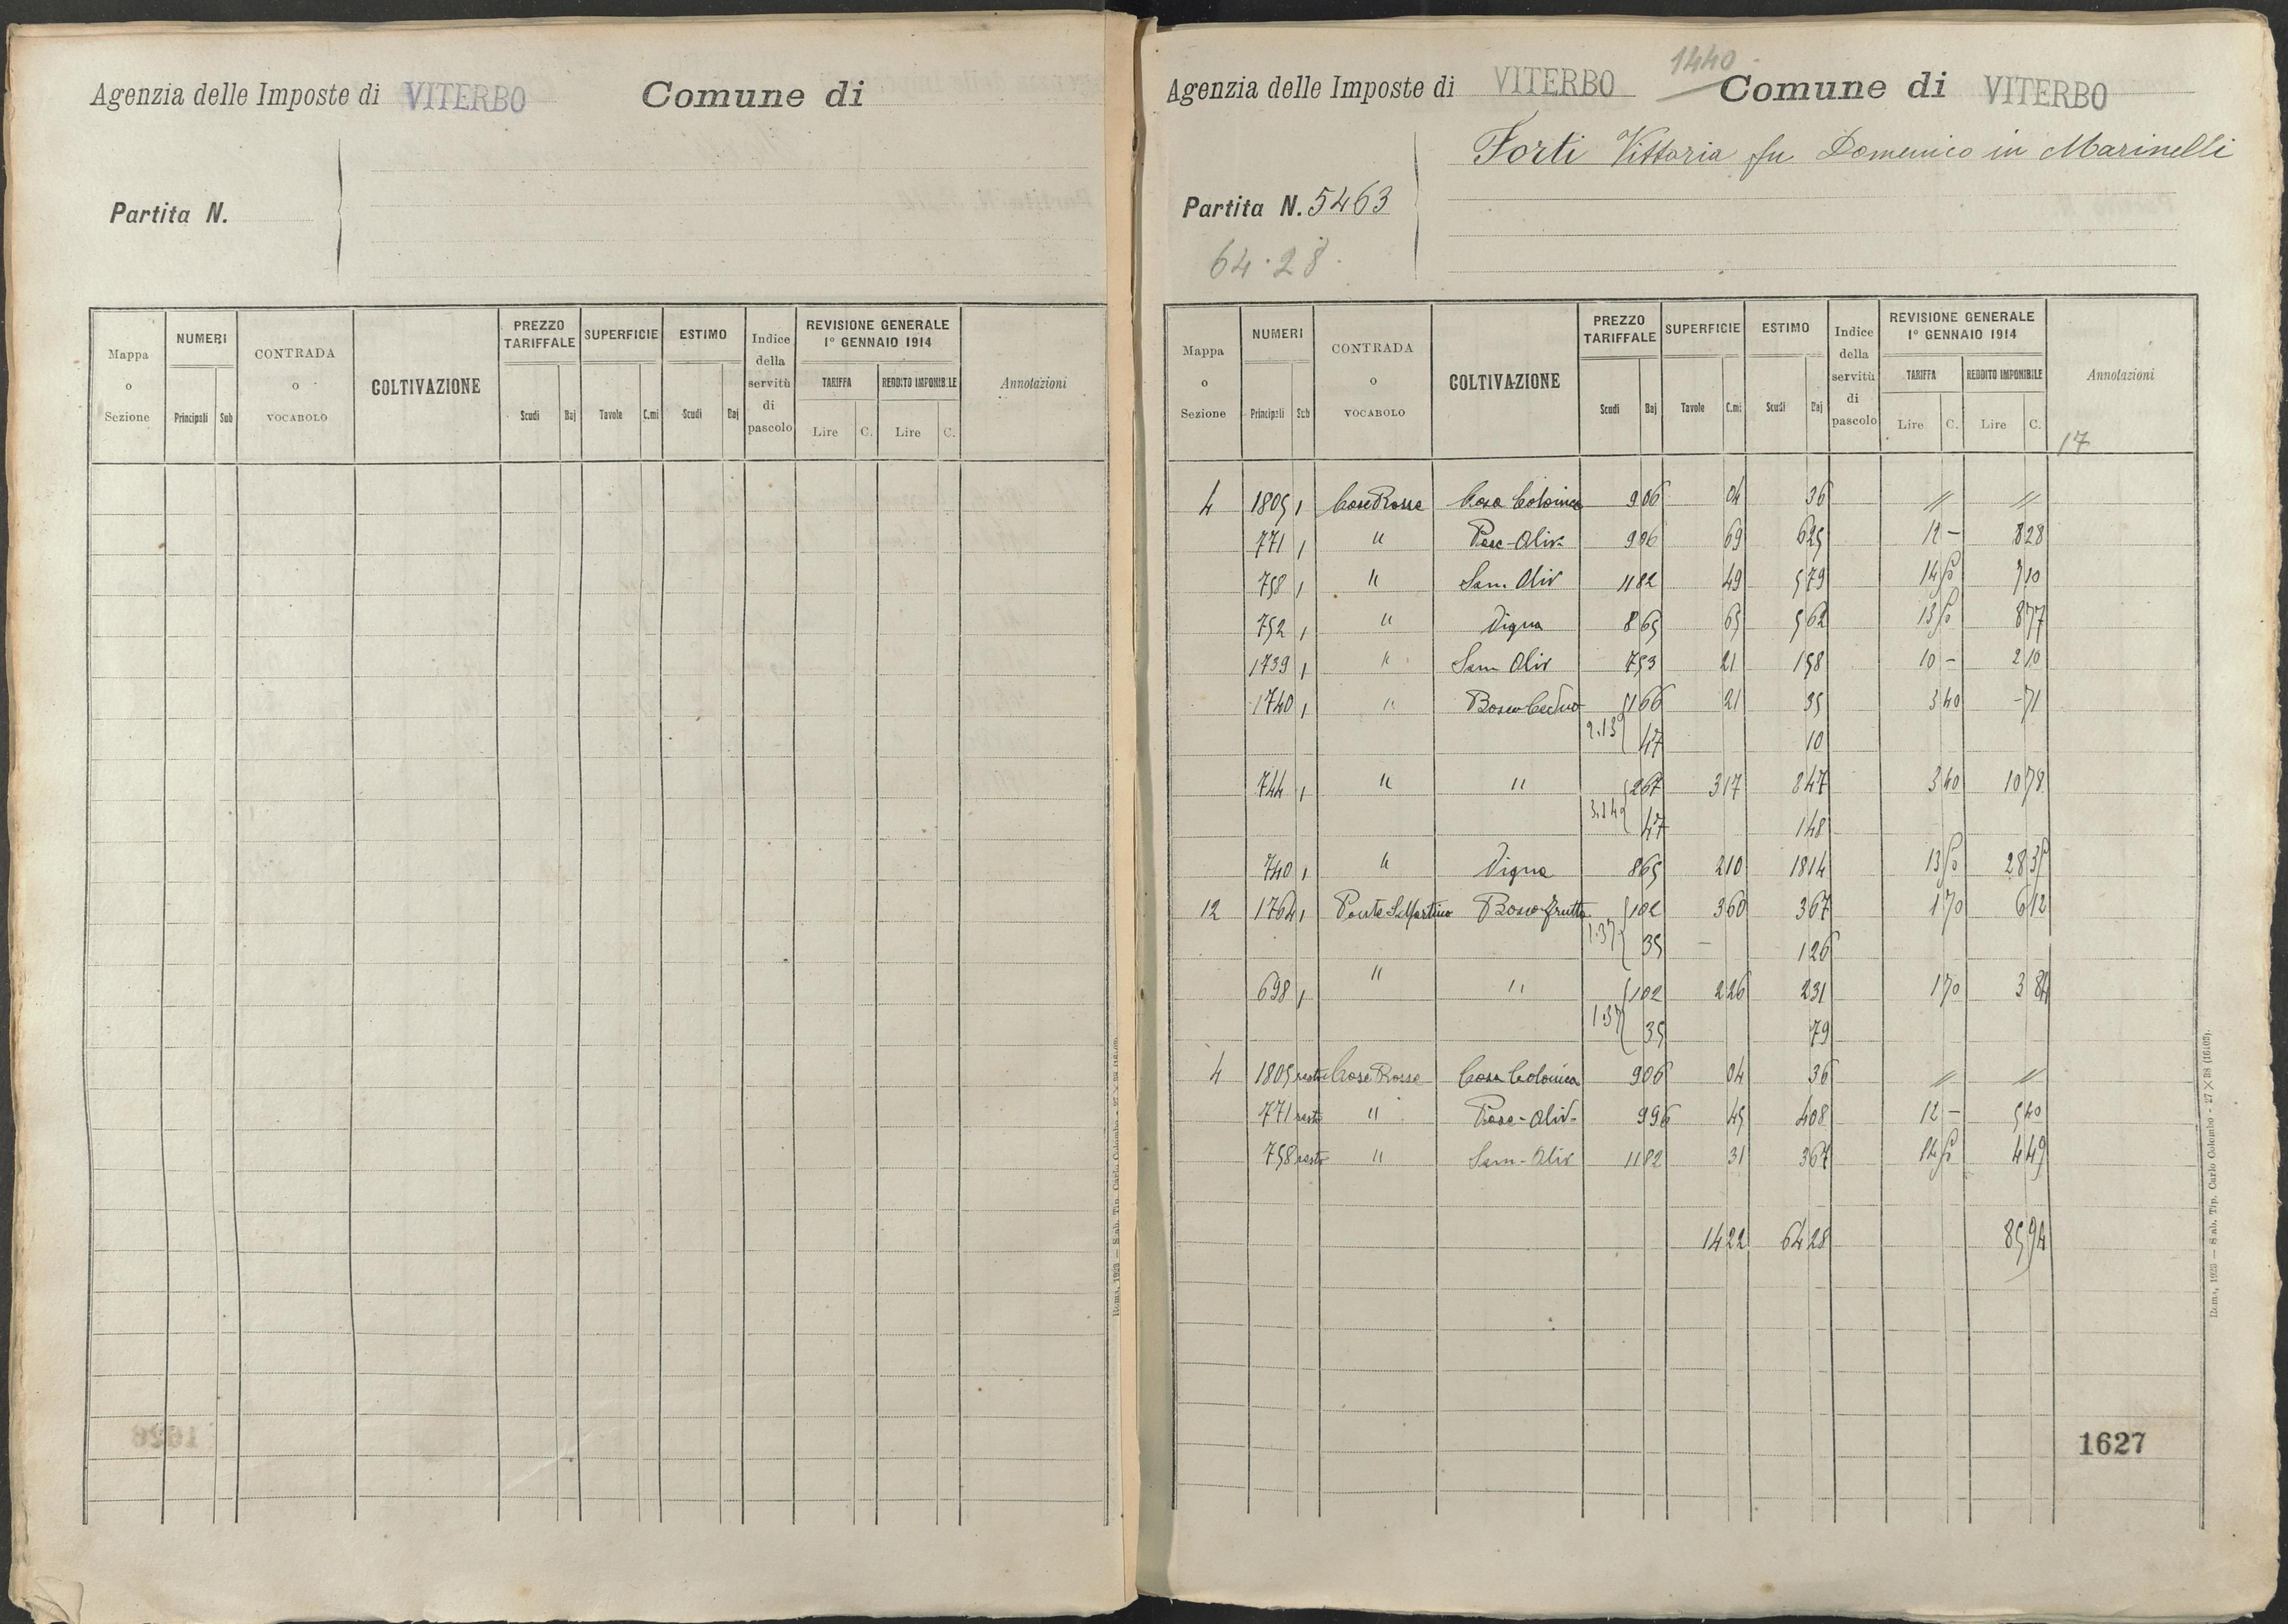 Agenzia delle Imposte di VITERBO Comune di
Partita N.
Mappa o Sezione | NUMERI Principali Sub | CONTRADA o VOCABOLO | COLTIVAZIONE | PREZZO TARIFFALE Scudi Baj | SUPERFICIE Tavole C.mi | ESTIMO Scudi Baj | Indice della servitù di pascolo | REVISIONE GENERALE 1° GENNAIO 1914 TARIFFA Lire C. REDDITO IMPONIBILE Lire C. | Annotazioni
1440
Agenzia delle Imposte di VITERBO Comune di VITERBO
Forti Vittoria fu Domenico in Marinelli
Partita N. 5463
64.28.
Mappa o Sezione | NUMERI Principali Sub | CONTRADA o VOCABOLO | COLTIVAZIONE | PREZZO TARIFFALE Scudi Baj | SUPERFICIE Tavole C.mi | ESTIMO Scudi Baj | Indice della servitù di pascolo | REVISIONE GENERALE 1° GENNAIO 1914 TARIFFA Lire C. REDDITO IMPONIBILE Lire C. | Annotazioni
17
4 1805 1 Case Rosse Casa Colonica 9 06 04 36 // //
771 1 " Pasc-Oliv. 9 06 69 6 25 12 - 8 28
758 1 " Sem. Oliv 11 82 49 5 79 14 50 7 10
752 1 " Vigna 8 65 65 5 62 13 50 8 77
1739 1 " Sem Oliv 7 53 21 1 58 10 - 2 10
1740 1 " Bosco Ceduo 1 66 21 35 3 40 - 71
2.13 47 10
744 1 " " 2 67 3 17 8 47 3 40 10 78
3.14 47 1 48
740 1 " Vigna 8 65 2 10 18 14 13 50 28 35
12 1764 1 Ponte S. Martino Bosco frutto 1 02 3 60 3 67 1 70 6 12
1.37 35 - 1 26
698 1 " " 1 02 2 26 2 31 1 70 3 84
1.37 35 79
4 1805 resto Case Rosse Casa Colonica 9 06 04 36 // //
771 resto " Pasc-Oliv. 9 96 45 4 08 12 - 5 40
758 resto " Sem-Oliv 11 82 31 3 67 14 50 4 49
14 22 64 28 85 94
1627
Roma, 1923 — Stab. Tip. Carlo Colombo - 27 × 38 (16102).